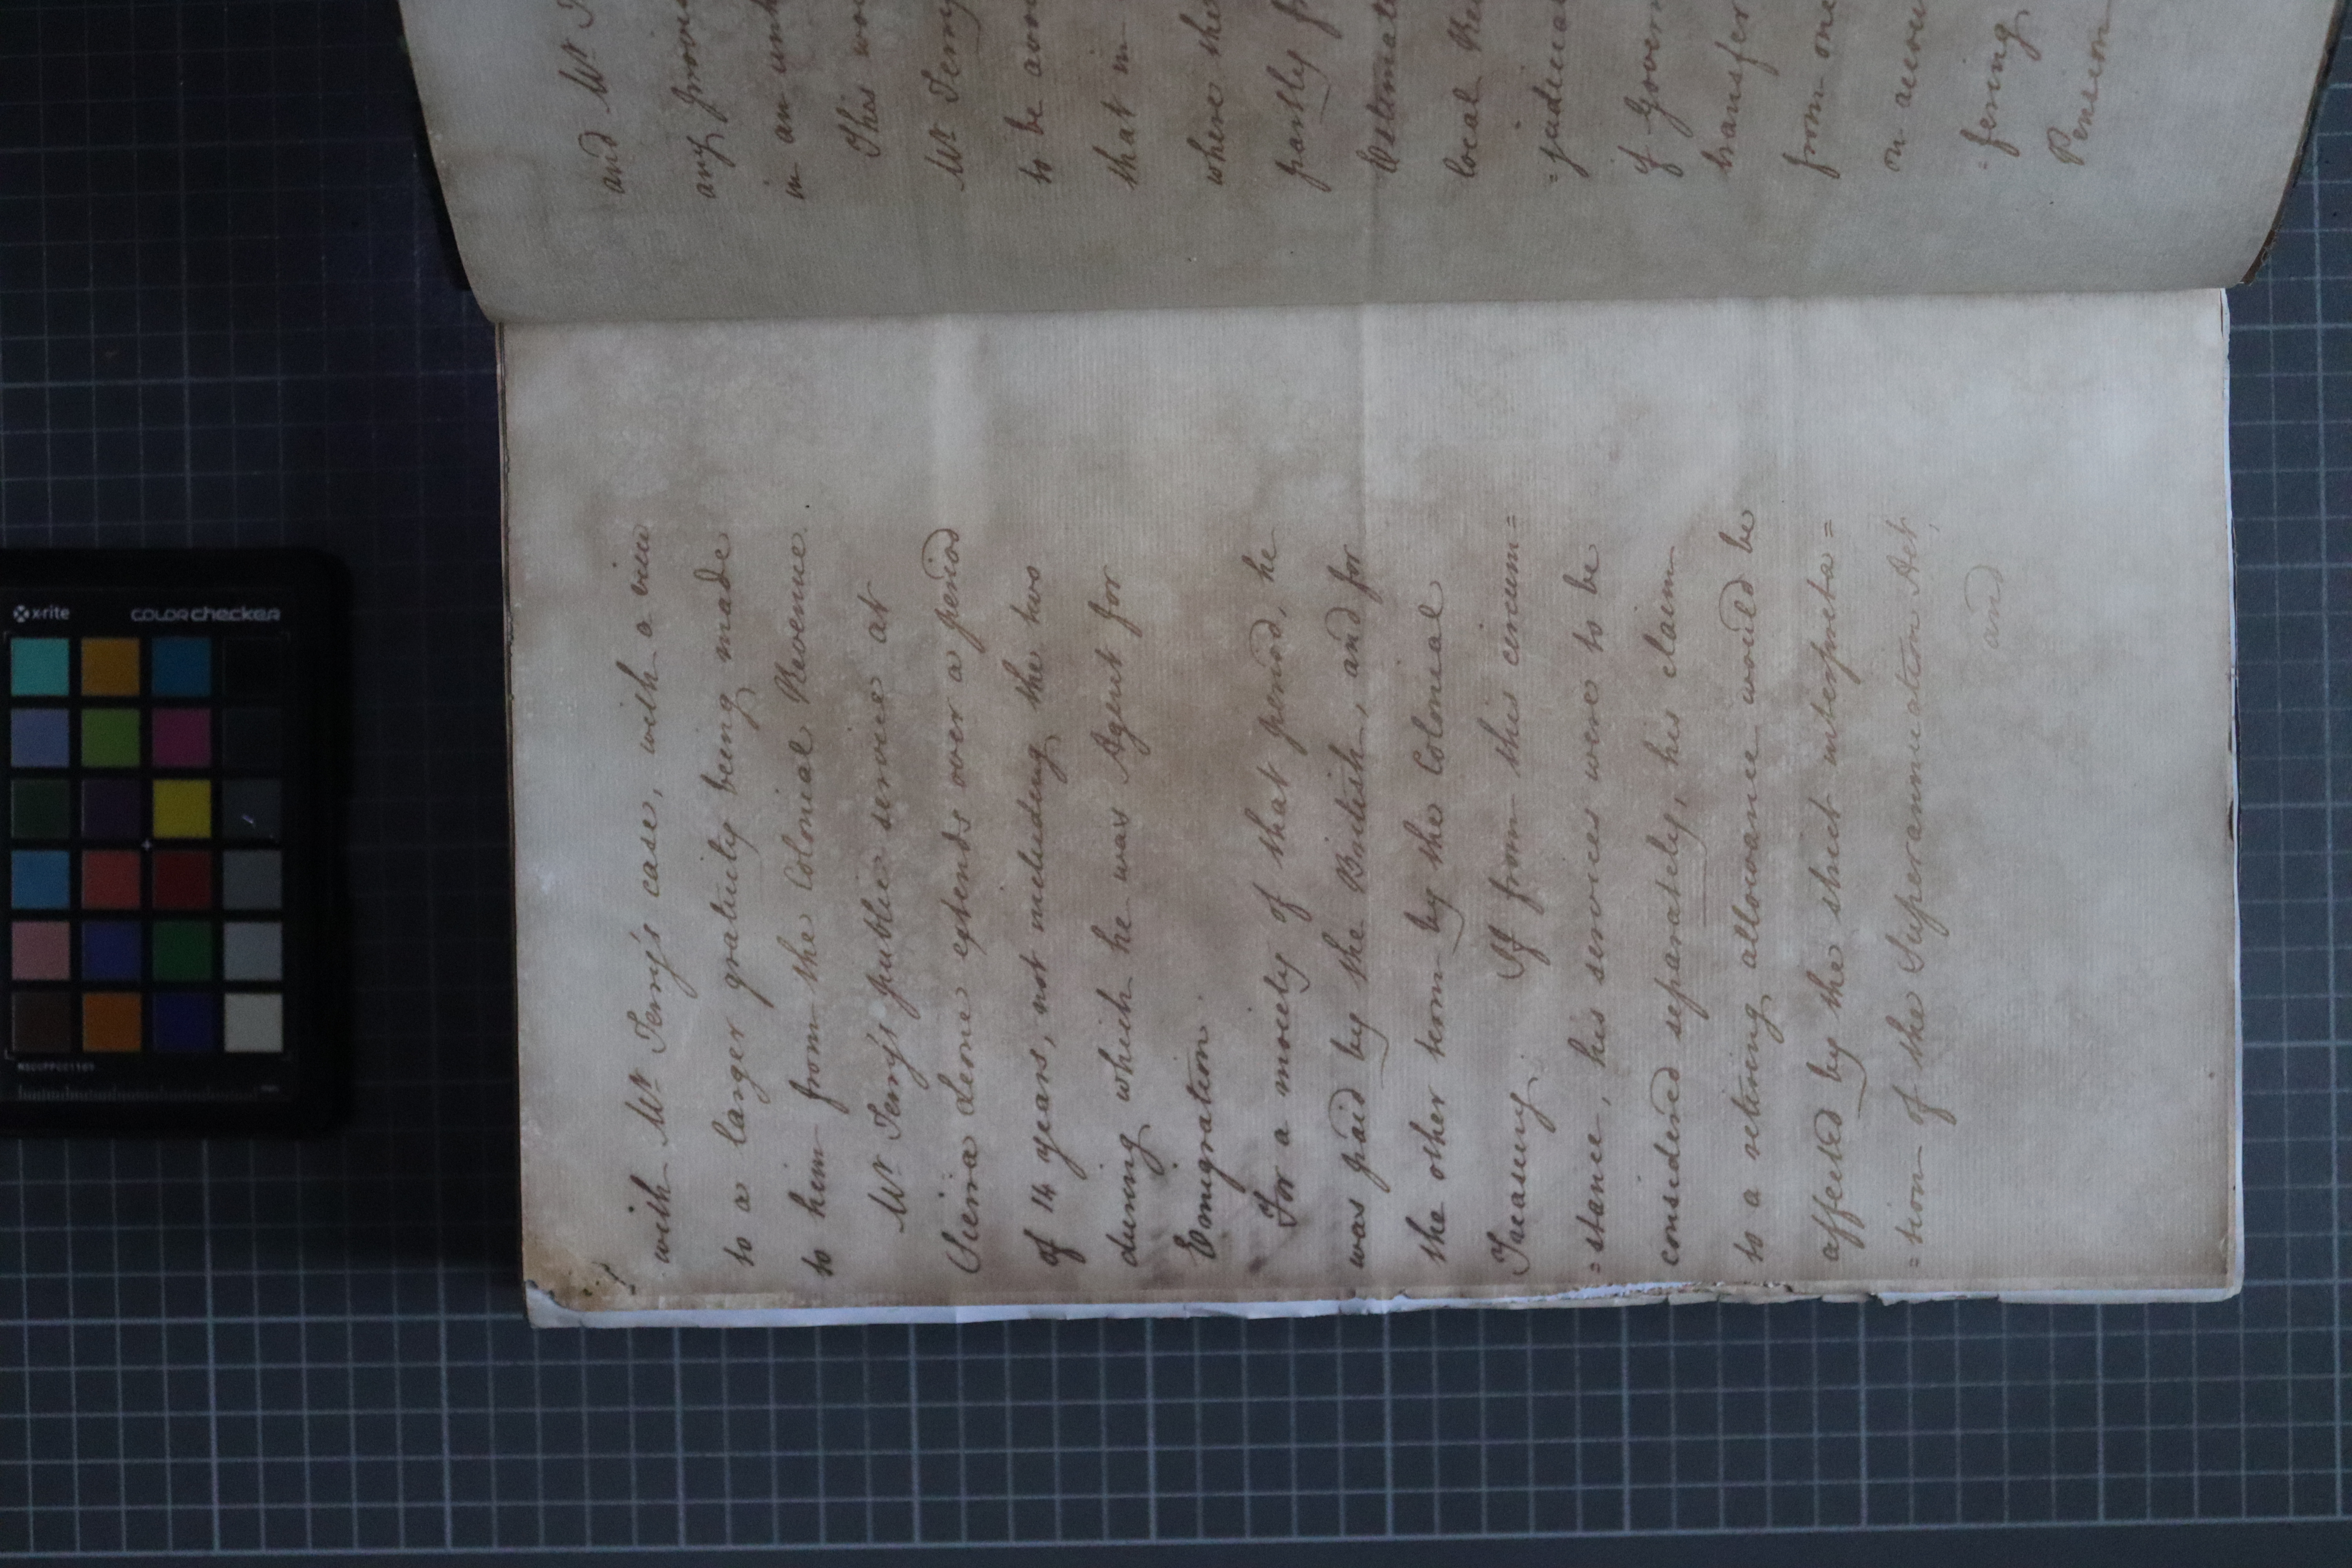 with Mr. Terry's case, with a view
to a larger gratuity being made
to him from the Colonial Revenue.
Mr. Terry's public service at
Sierra Leone extends over a period
of 14 years, not including the two
during which he was Agent for
Emigration.
For a moiety of that period, he
was paid by the British, and for
the other term by the Colonial
Treasury. If from this circum=
=stance, his services were to be
considered separately, his claim
to a retiring allowance would be
affected by the strict interpreta=
=tion of the Superannuation Act,
and
and Mr. T
any
in an
This
Mr. Terry
to be
that in
where the
partly f
Estimat
local Rev
=judicia
of Govern
transfer
from one
on accou
=fering
Pension
x-rite
colorchecker